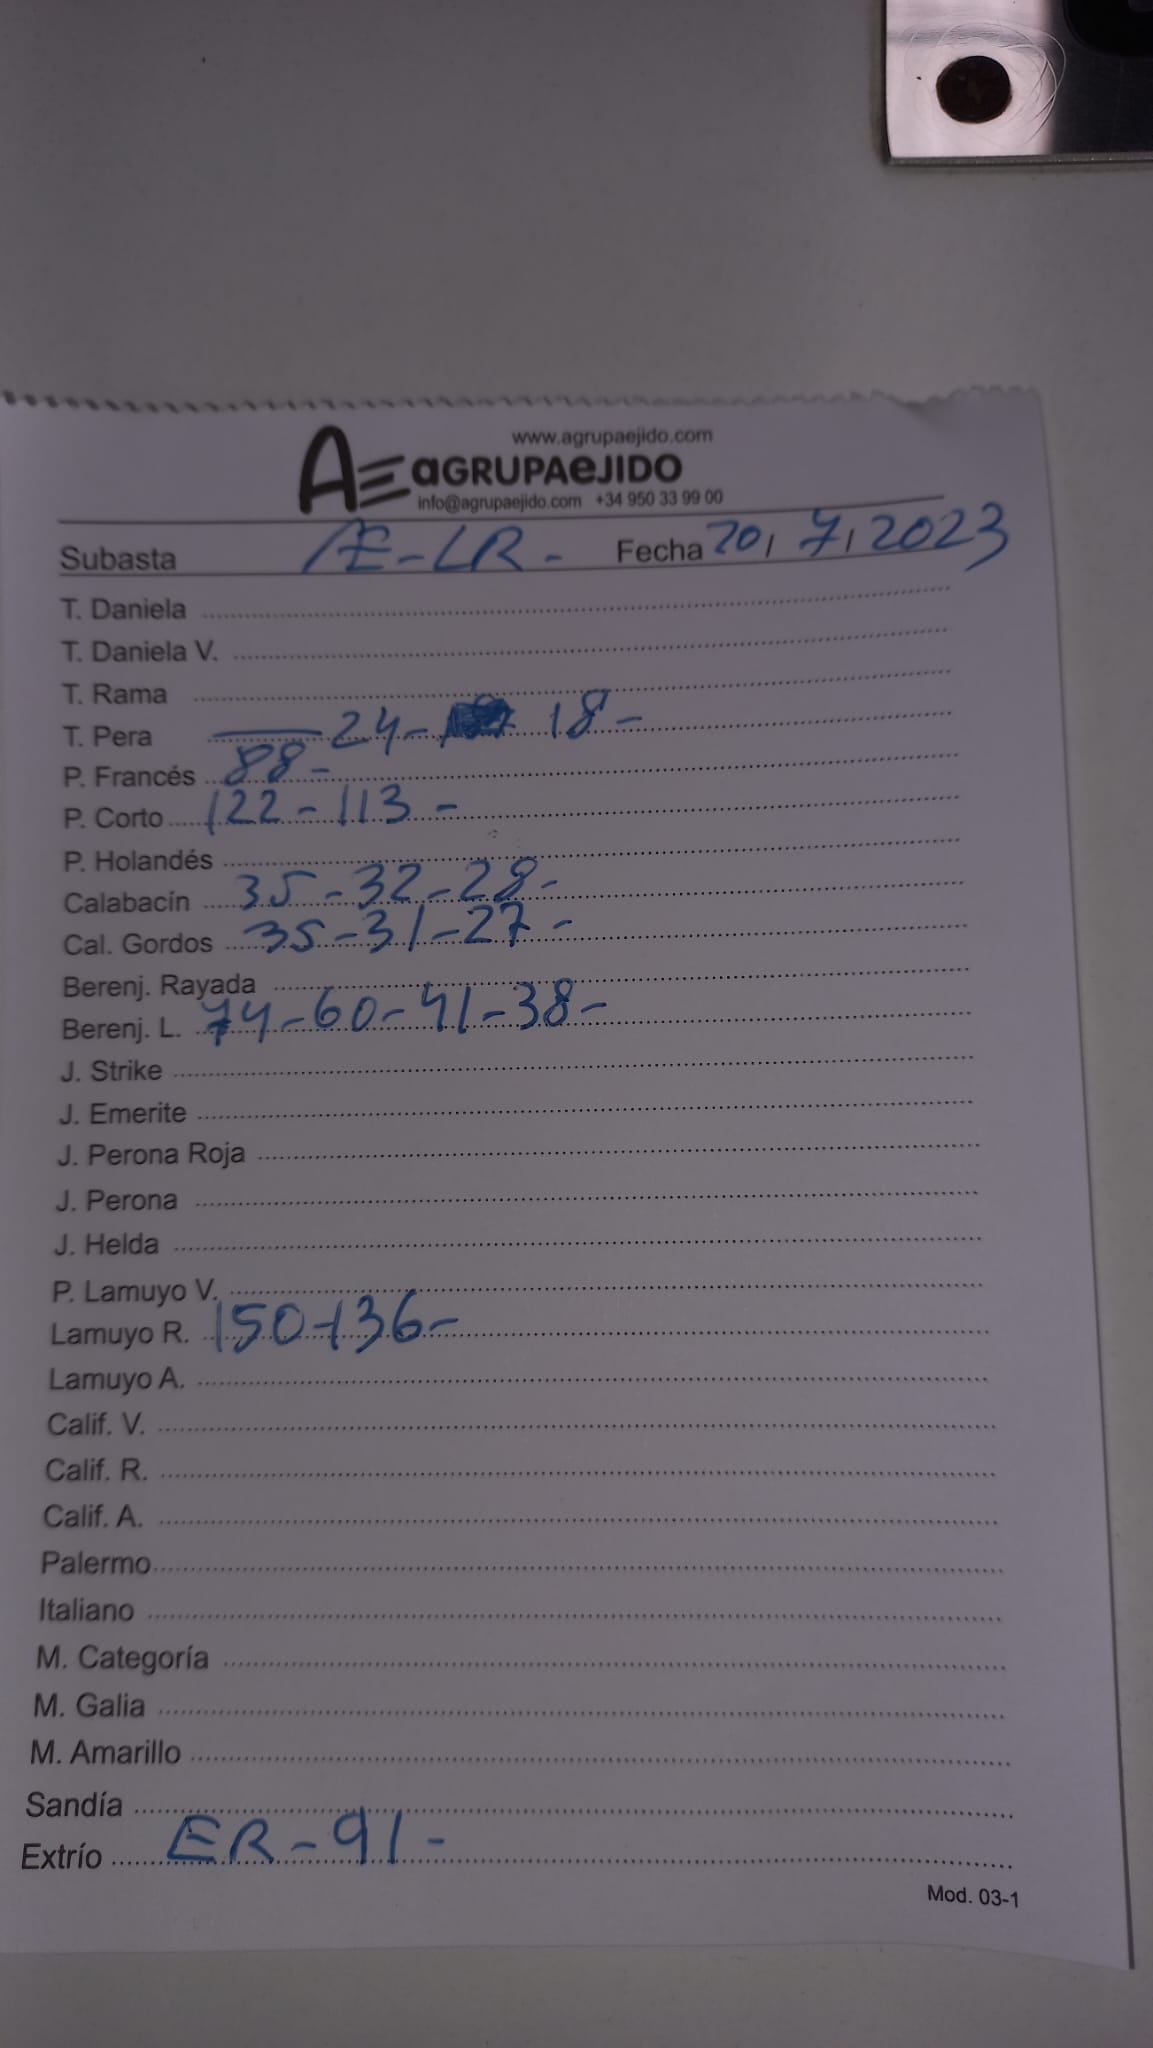 www.agrupaejido.com
AE aGRUPAeJIDO
info@agrupaejido.com +34 950 33 99 00
Subasta Æ-LR- Fecha 20/ 7/ 2023
T. Daniela
T. Daniela V.
T. Rama
T. Pera 24- 18-
P. Francés 88-
P. Corto 122-113-
P. Holandés
Calabacín 35-32-28-
Cal. Gordos 35-31-27-
Berenj. Rayada
Berenj. L. 74-60-41-38-
J. Strike
J. Emerite
J. Perona Roja
J. Perona
J. Helda
P. Lamuyo V.
Lamuyo R. 150-136-
Lamuyo A.
Calif. V.
Calif. R.
Calif. A.
Palermo
Italiano
M. Categoría
M. Galia
M. Amarillo
Sandía
Extrío ER-91-
Mod. 03-1